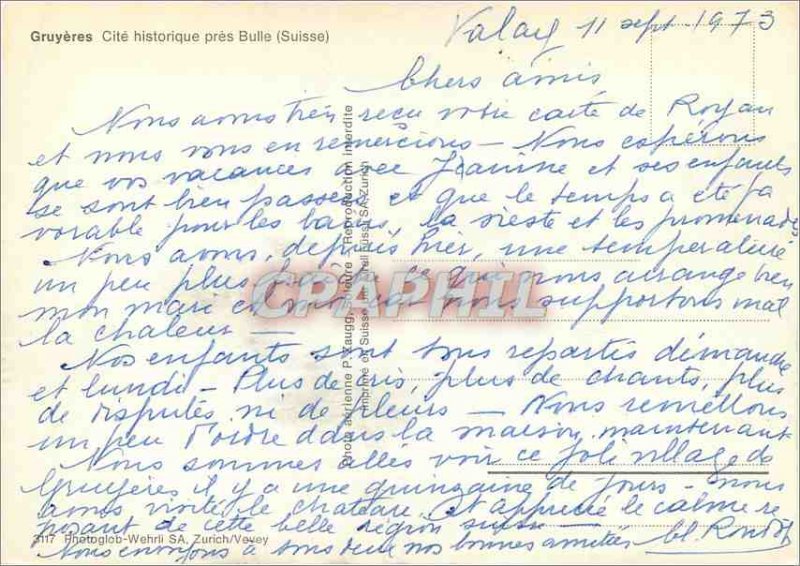 Gruyères Cité historique près Bulle (Suisse)
Valay 11 sept 1973
Chers amis
Nous avons bien reçu votre carte de Royan
et nous vous en remercions – Nous espérons
que vos vacances avec Jeanine et ses enfants
se sont bien passées et que le temps a été fa
vorable pour les bains, la sieste et les promenades
Nous avons, depuis hier, une température
un peu plus ce qui nous arrange bien
mon mari et moi car nous supportons mal
la chaleur —
Nos enfants sont tous repartis dimanche
et lundi – Plus de cris, plus de chants, plus
de disputes ni de pleurs — Nous remettons
un peu d'ordre dans la maison, maintenant
Nous sommes allés voir ce joli village de
Gruyères il y a une quinzaine de jours – nous
avons visité le chateau et apprécié le calme re
posant de cette belle région suisse —
Nous envoyons à tous deux nos bonnes amitiés
3117 Photoglob-Wehrli SA, Zurich/Vevey
Photo aérienne P. Zaugg, Reproduction interdite
Imprimé en Suisse SA, Zurich
CPAPHIL